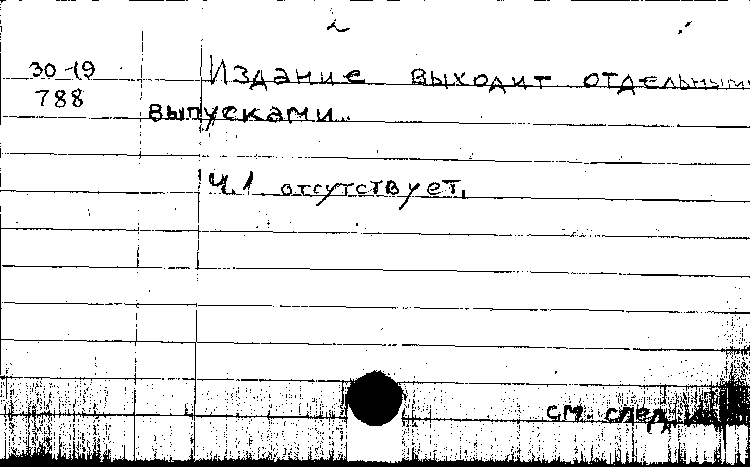 2
30-19 Издание выходит отдельными
788 выпусками.
Ч.1 отсутствует.
см. след.